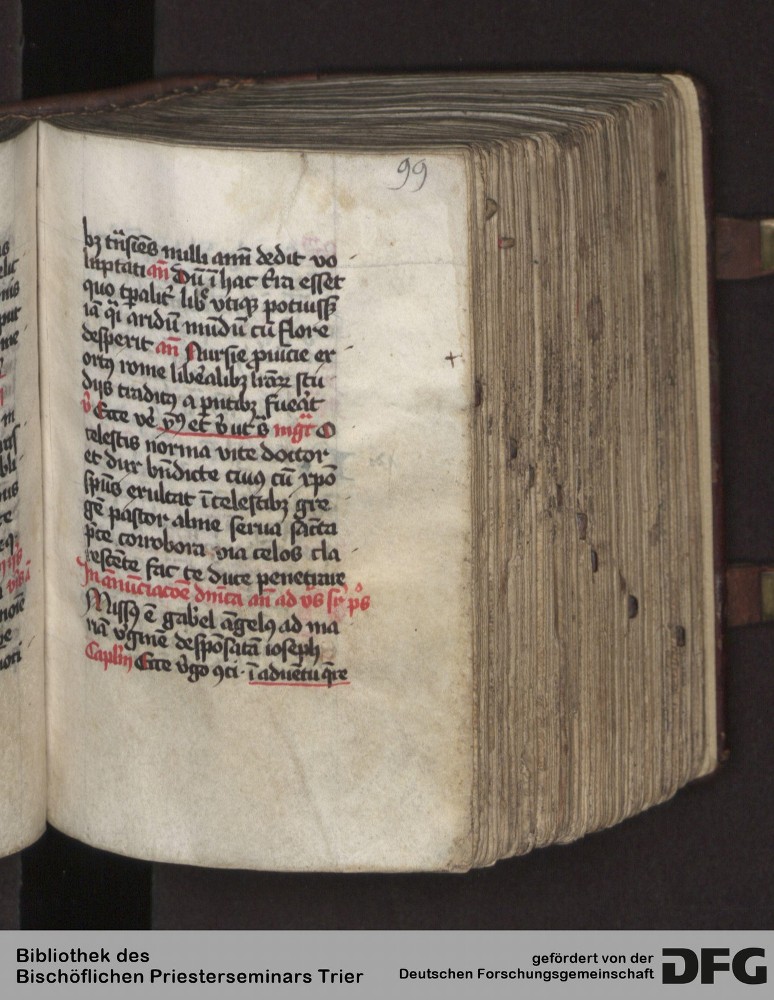 99
bꝫ tͣnsiēs nulli anī dedit vo
luptati an̄ Dū ī hac t̄ra esset
quo tp̄alit᷑ libe vtiqꝫ potuissꝫ
iā qͣi aridū mūdū cū flore
desperit an̄ Nursie ꝓuīcie ex
ortꝰ rome libēalibꝫ lrārꝝ stu
diis traditꝰ a pͣntibꝫ fuēat
v̉ Ecce vē ꝑꝰ et v̉ ut sͣ mgͣt O
celestis norma vite doctor
et dux bn̄dicte cuiꝰ cū xp̄o
sp̄ūs exultat ī celestibꝫ gre
gē pastor alme serua sācta
p̄ce corrobora via celos cla
rescēte fac te duce penetrare
In ānūciacōe dnīca an̄ ad v̄s sr̄ pͦs
Missꝰ ē gabͥel āgelꝰ ad ma
riā v̉ginē despōsatā ioseph
Caplm̄ Ecce v̉go ꝯci· ī aduētu qͣre
Bibliothek des
Bischöflichen Priesterseminars Trier
gefördert von der
Deutschen Forschungsgemeinschaft
DFG